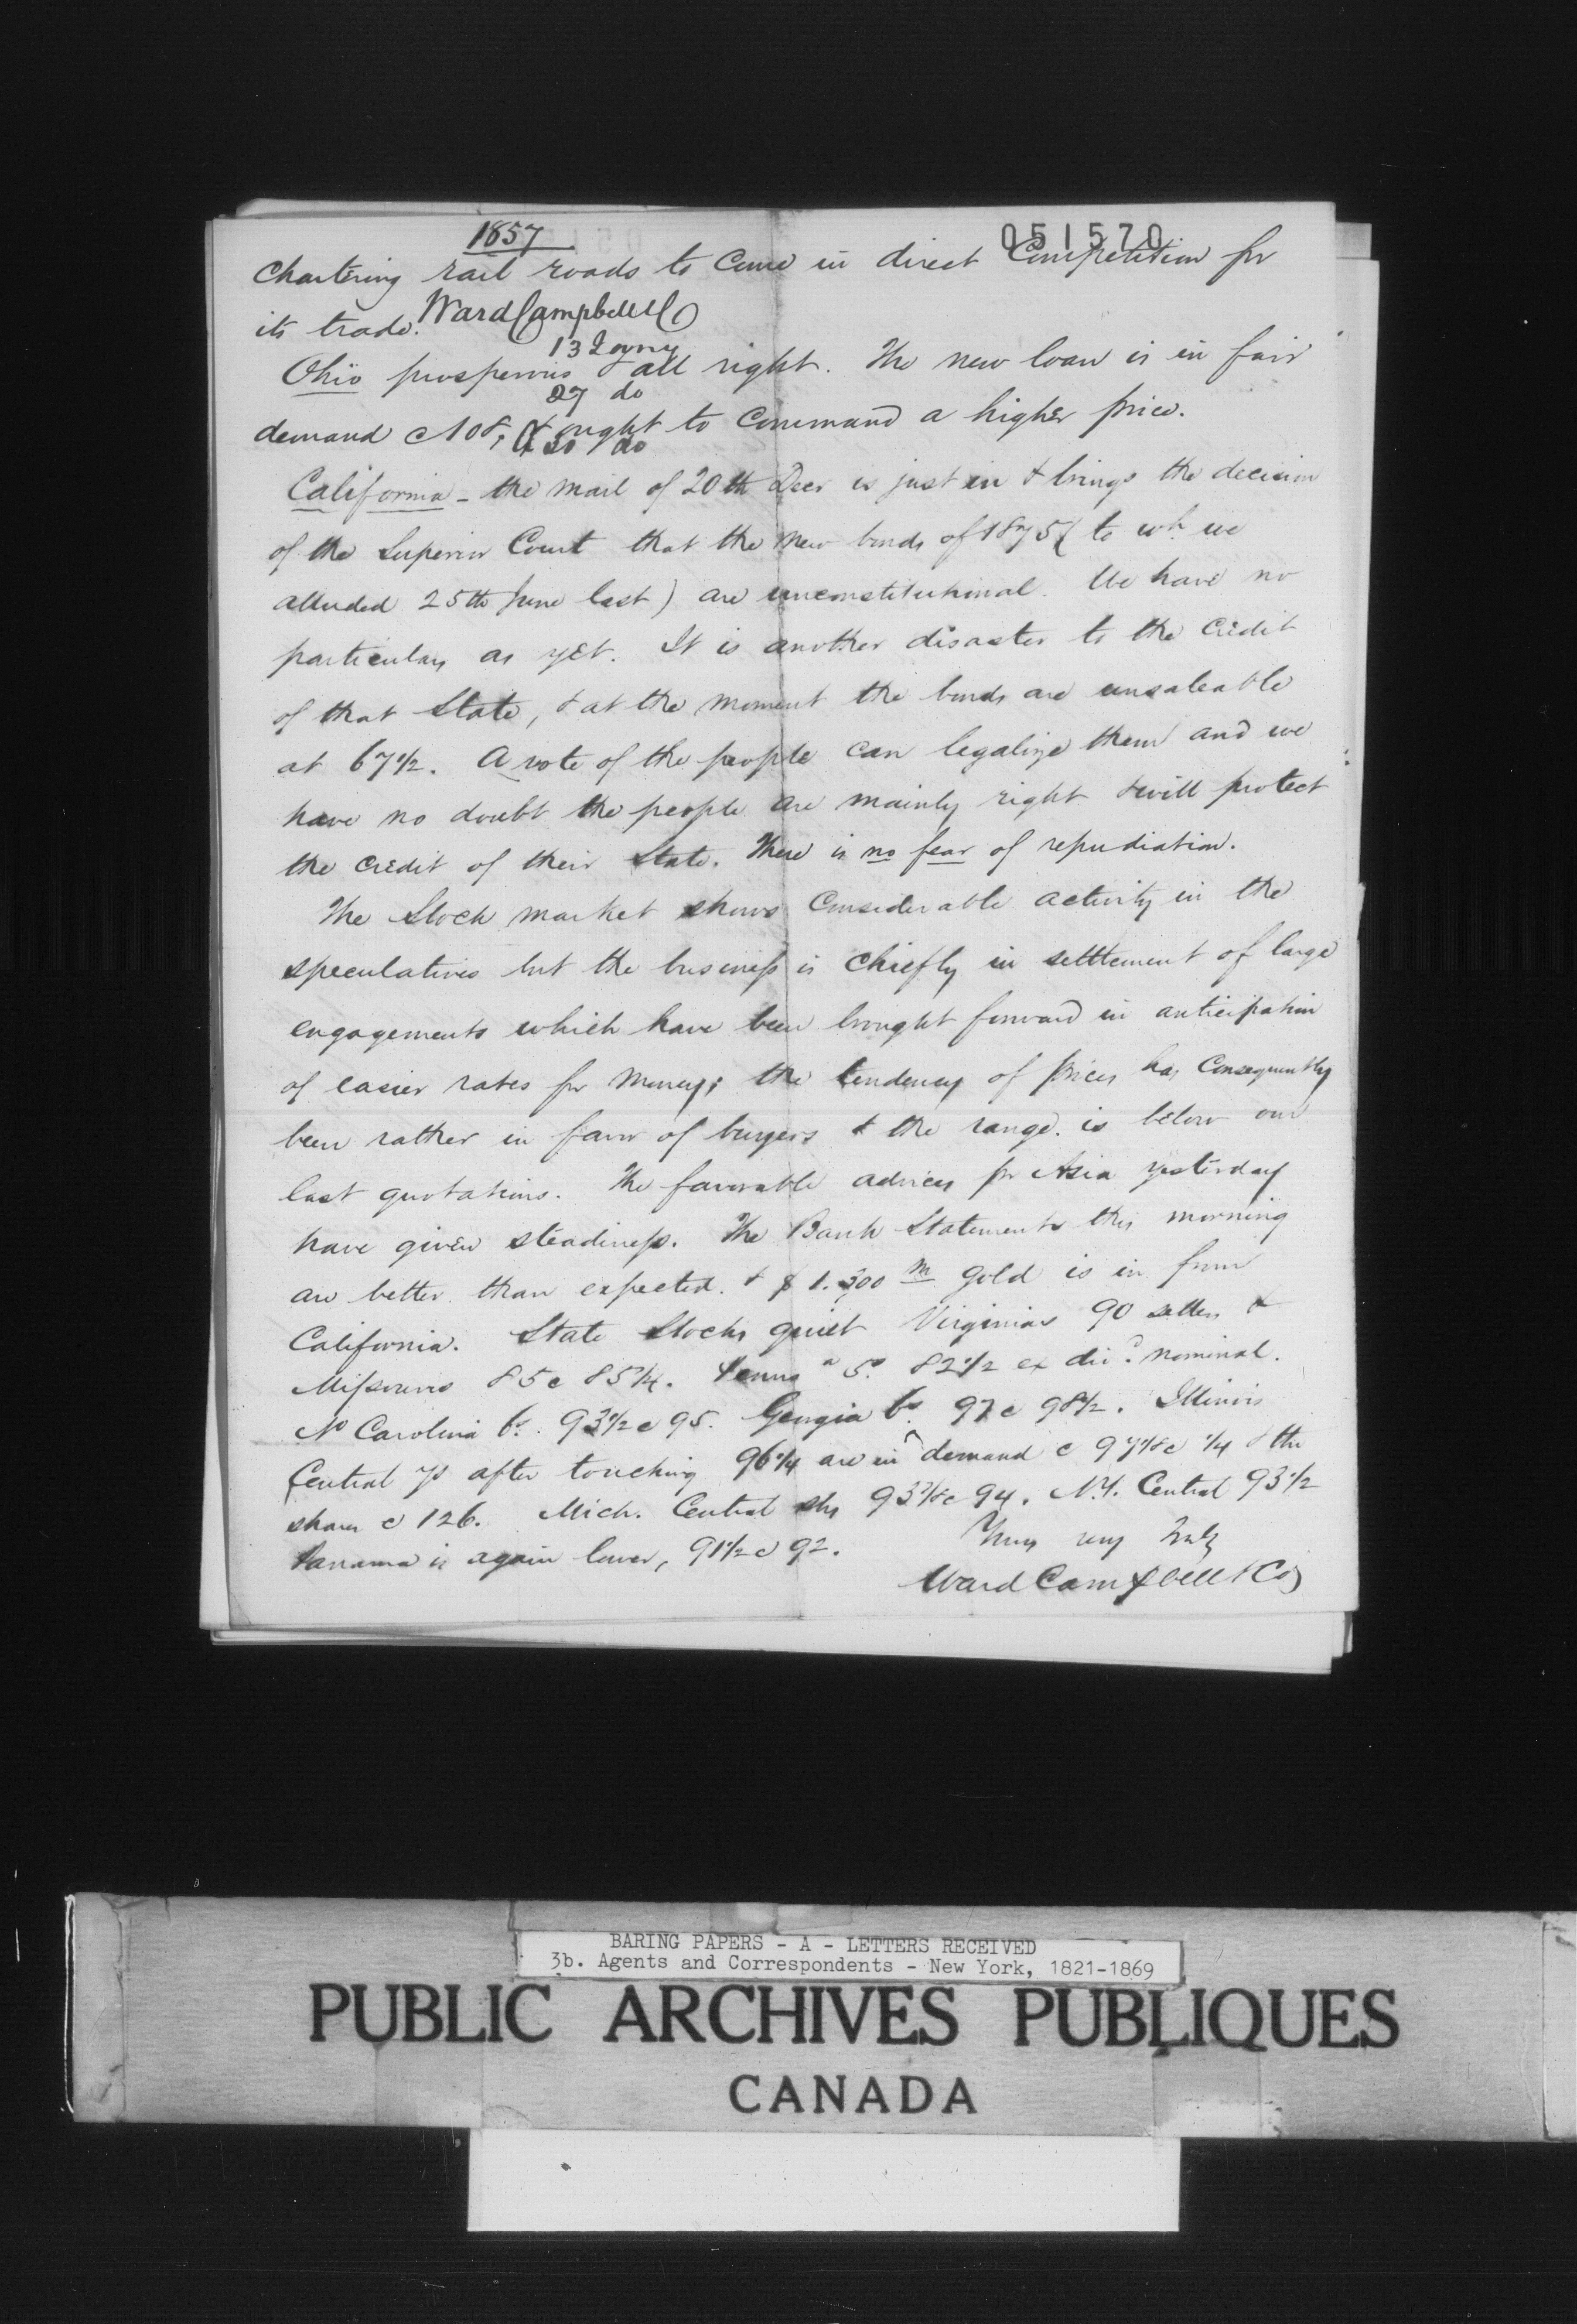 1857
051570
chartering rail roads to come in direct competition for
its trade.
Ward Campbell & Co
13
Ohio prosperous & all right. The new loan is in fair
27 do
demand @ 108, & ought to command a higher price.
30 do
California - the mail of 20th Decr is just in & brings the decision
of the Superior Court that the new bonds of 1875 (to wh we
alluded 25th June last) are unconstitutional. We have no
particulars as yet. It is another disaster to the credit
of that State, & at the moment the bonds are unsaleable
at 67 1/2. A vote of the people can legalize them and we
have no doubt the people are mainly right & will protect
the credit of their State. There is no fear of repudiation.
The Stock market shows considerable activity in the
speculatives but the business is chiefly in settlement of large
engagements which have been brought forward in anticipation
of easier rates for money; the tendency of prices has consequently
been rather in favor of buyers & the range is below our
last quotations. The favorable advices pr Asia yesterday
have given steadiness. The Bank Statements this morning
are better than expected. & $1.300 m gold is in from
California. State Stocks quiet Virginias 90 sellers &
Missouris 85 @ 85 1/4. Tenns 5s 82 1/2 ex divd nominal.
No Carolina 6s. 93 1/2 @ 95. Georgia 6s. 97 @ 98 1/2. Illinois
Central 7s after touching 96 1/4 are in demand @ 97 1/8 @ 1/4 & the
shares @ 126. Mich. Central shs 93 7/8 @ 94. N.Y. Central 93 1/2
Panama is again lower, 91 1/2 @ 92.
Yours very truly
Ward Campbell & Co
BARING PAPERS - A - LETTERS RECEIVED
3b. Agents and Correspondents - New York, 1821-1869
PUBLIC ARCHIVES PUBLIQUES
CANADA